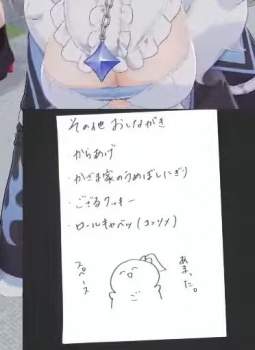 その他 おしながき
からあげ
・かざま家のうめぼしにぎり
・ござるクッキー
・ロールキャベツ(コンソメ)
あまった。
スペース
ご